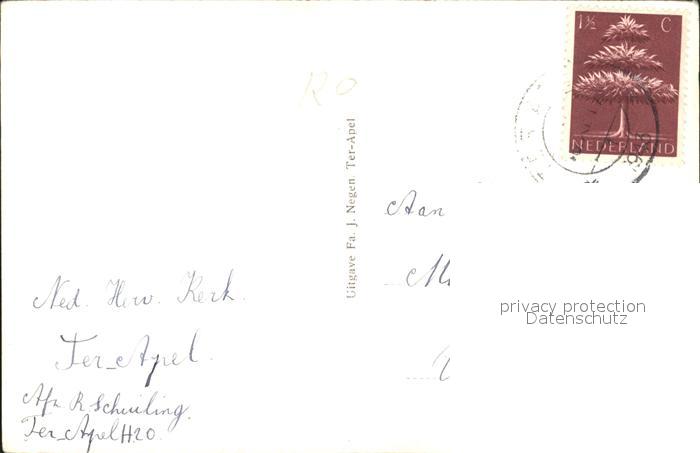 1½ C
NEDERLAND
RO
Uitgave Fa. J. Negen, Ter-Apel
Aan
M
privacy protection
Datenschutz
Ned. Herv. Kerk.
Ter-Apel.
Afz R Schuiling.
Ter-Apel H20.